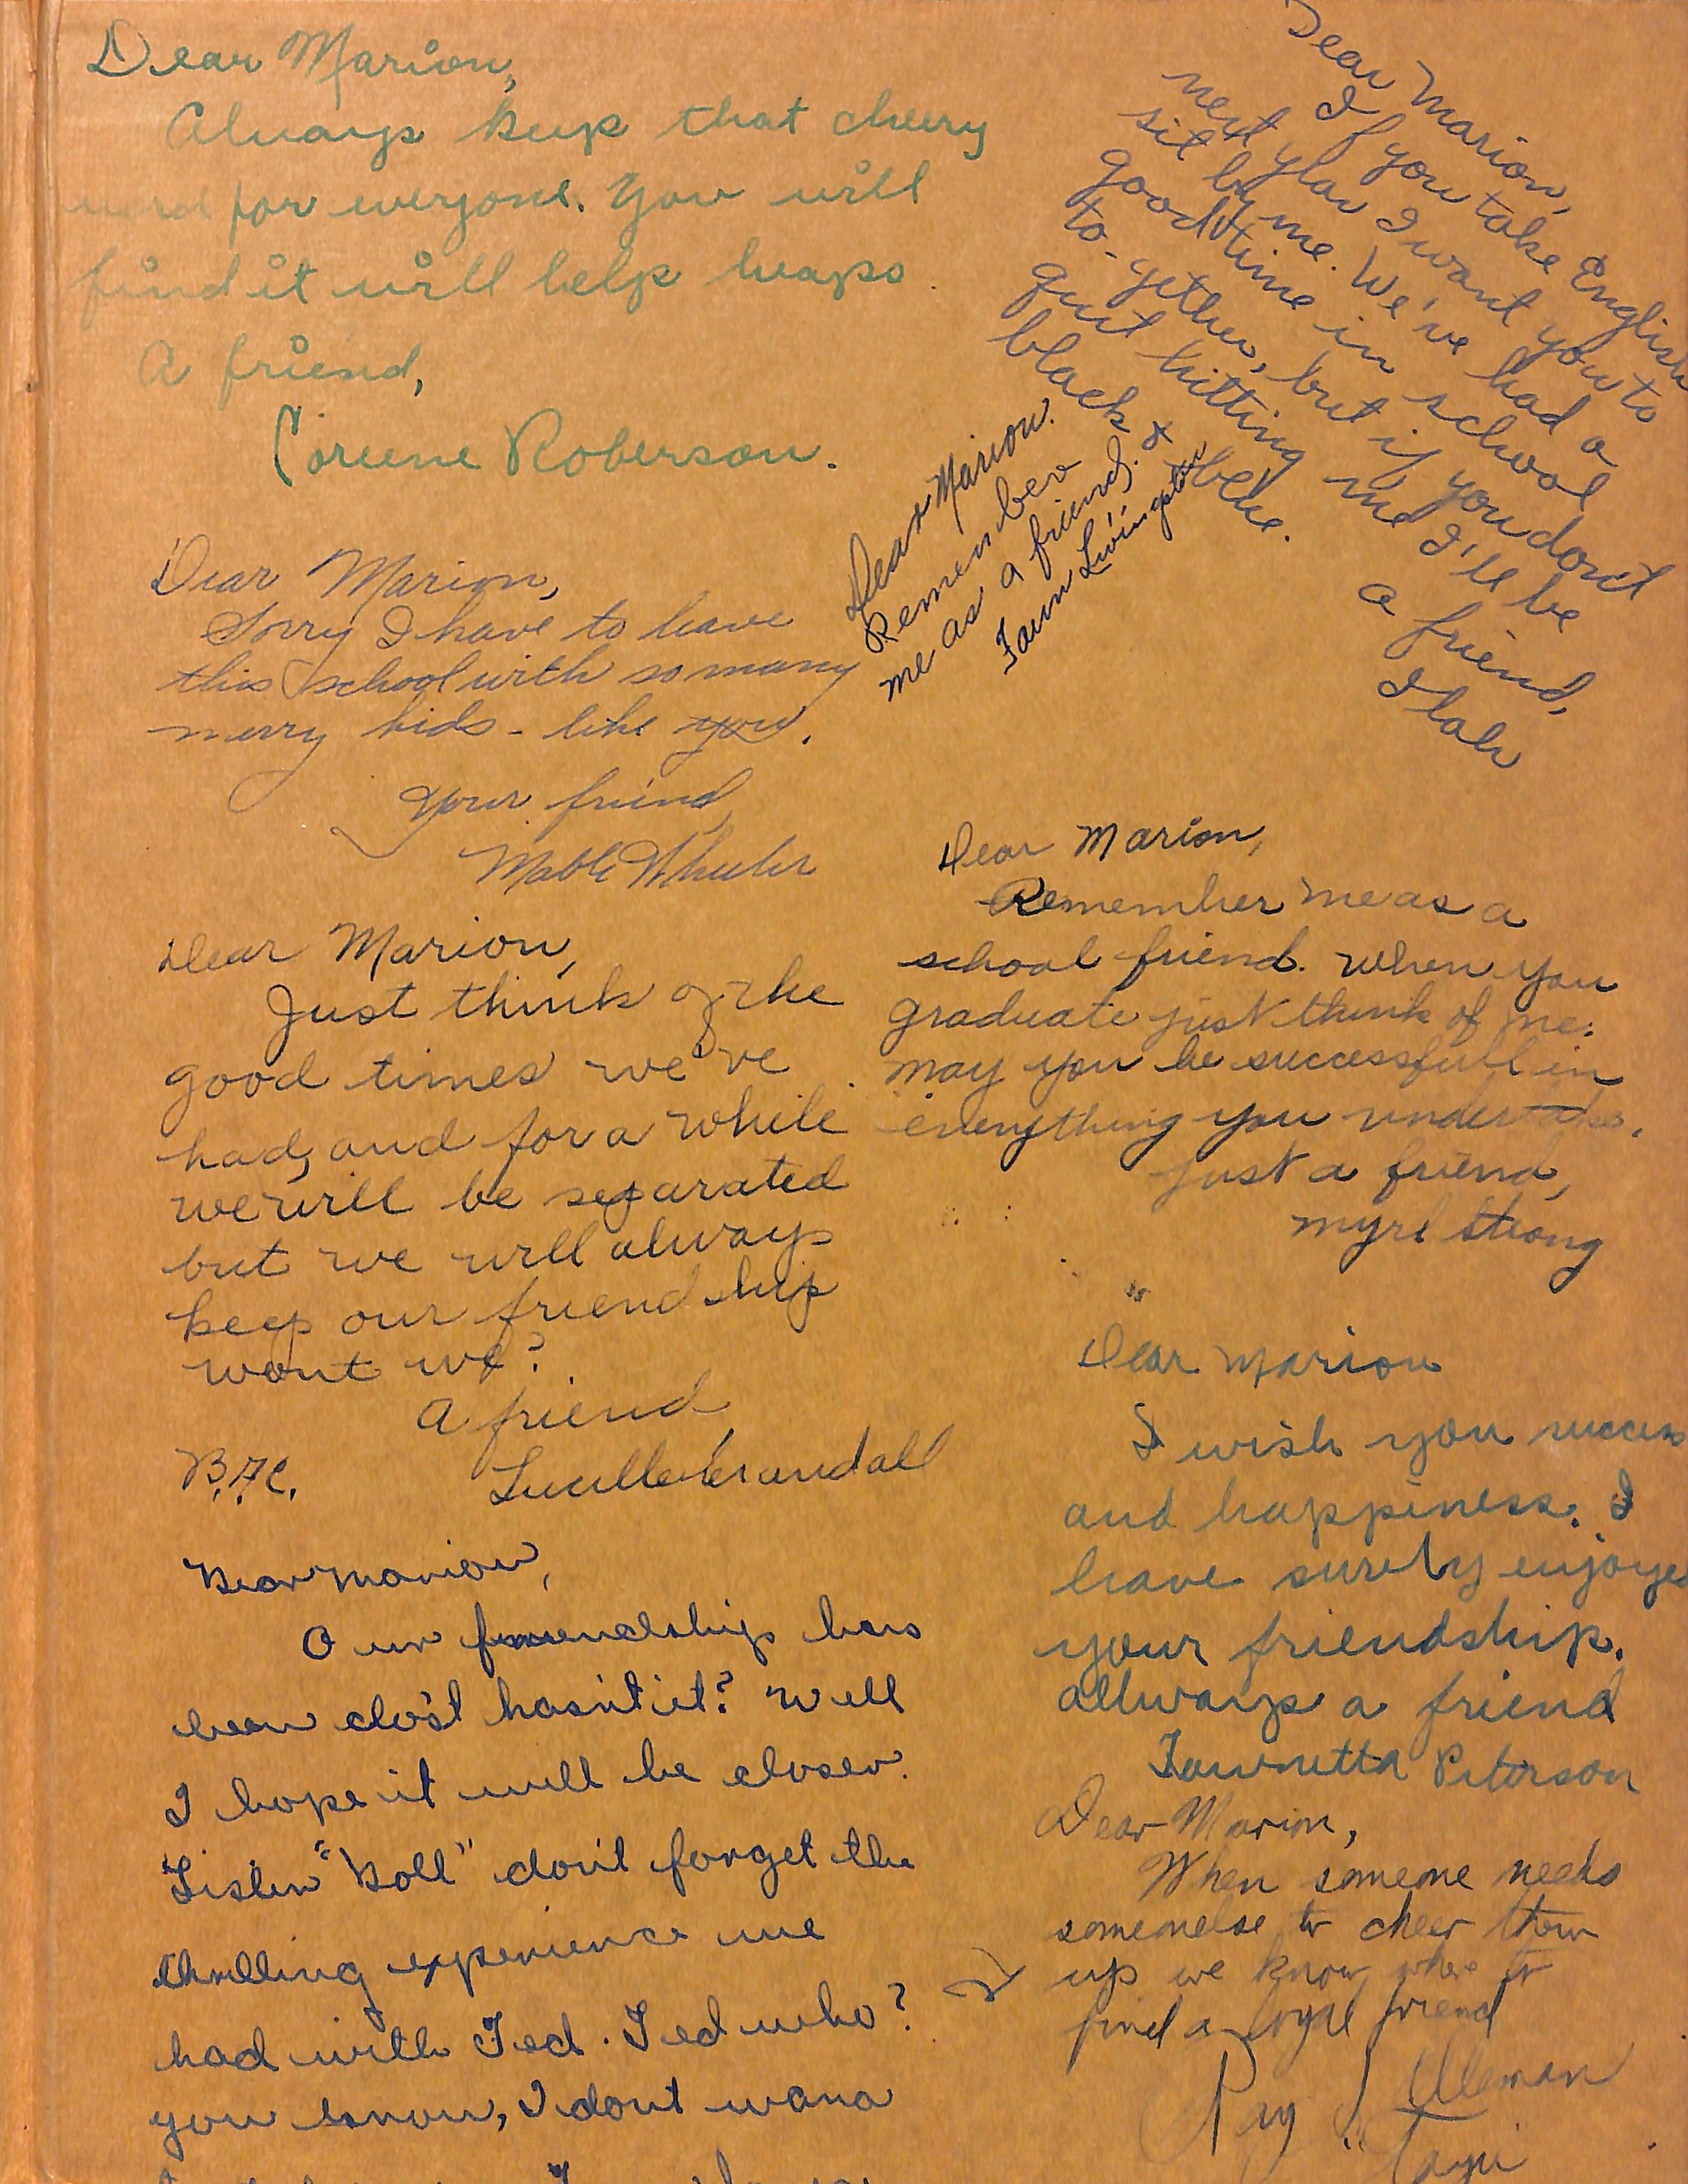 Dear Marion,
Always keep that cheery
word for everyone. You will
find it will help heaps.
A friend,
Corene Roberson.
Dear Marion,
If you take English
next year I want you to
sit by me. We've had a
good time in school
to-gether, but if you don't
quit hitting me I'll be
black & blue.
a friend,
Ilah
Dear Marion.
Remember
me as a friend.
Faun Livingston
Dear Marion,
Sorry I have to leave
this school with so many
merry kids - like you.
Your friend,
Mable Wheeler
Dear Marion,
Just think of the
good times we've
had, and for a while
we will be separated
but we will always
keep our friendship
wont we?
A friend,
B.F.C. Lucille Crandall
Dear Marion,
Remember me as a
school friend. When you
graduate just think of me.
may you be successfull in
everything you undertake.
Just a friend,
Myrl Strong
Dear Marion
I wish you success
and happiness. I
have surely enjoyed
your friendship.
allways a friend
Fawnetta Peterson
Dear Marion,
Our friendship has
been clos't hasn't it? Well
I hope it will be closer.
Listen "Doll" don't forget the
thrilling experience we
had with Ted. Ted who?
you know, I dont wana
Dear Marion,
When someone needs
someonelse to cheer them
up we know where to
find a loyal friend
Ray